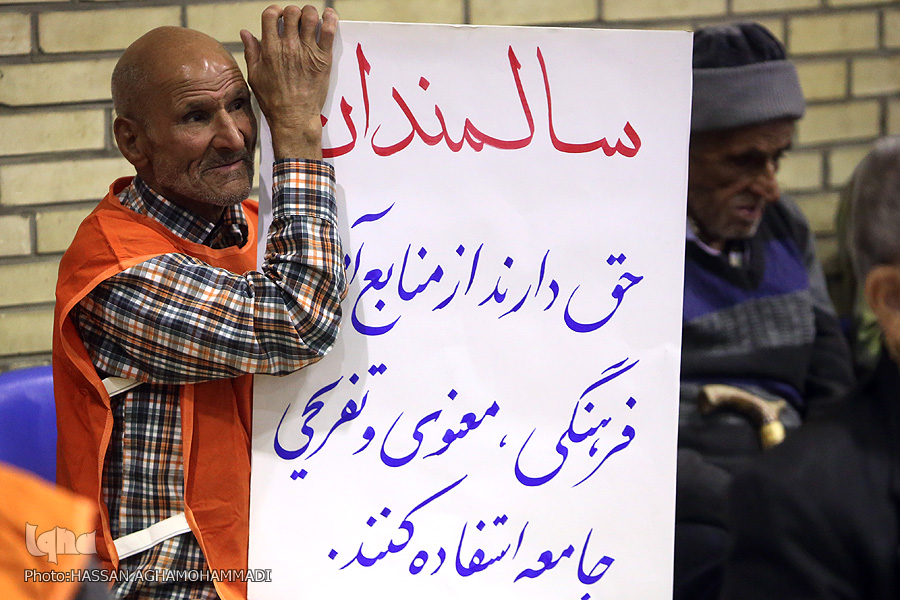 سالمندان
حق دارند از منابع
فرهنگی، معنوی و تفریحی
جامعه استفاده کنند.
iqna
Photo:HASSAN AGHAMOHAMMADI